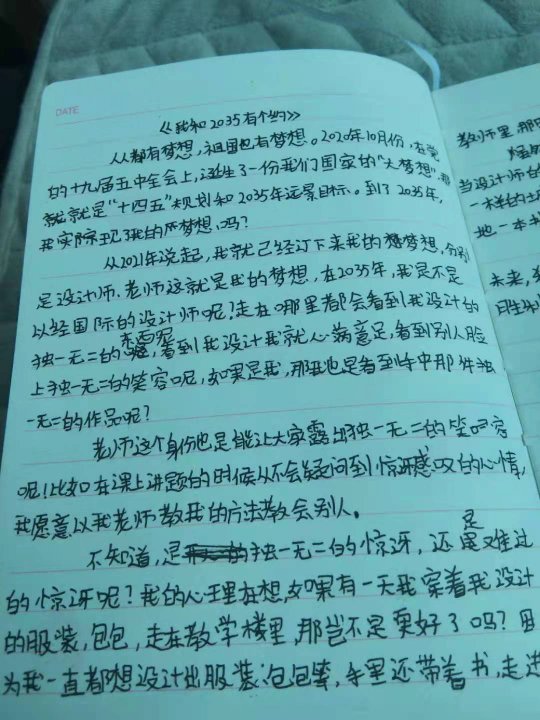 DATE
《我和2035有个约》
人人都有梦想，祖国也有梦想。2020年10月份，在党
的十九届五中全会上，诞生了一份我们国家的“大梦想”，那
就是“十四五”规划和2035年远景目标。到了2035年，
我实际现我的梦想吗？
从2021年说起，我就已经订下来我的梦想，分别
是设计师、老师这就是我的梦想，在2035年，我是不是
以经国际的设计师呢？走在哪里都会看到我设计的
独一无二的，看到我设计我就心满意足，看到别人脸
上独一无二的笑容呢，如果是我，那我也是看到特中那件独
一无二的作品呢？
老师这个身份也是能让大家露出独一无二的笑容
呢！比如在课上讲题的时候从不会疑问到惊讶感叹的心情，
我愿意以我老师教我的方法教会别人。
不知道，是独一无二的惊讶，还是又难过
的惊讶呢？我的心里在想，如果有一天我穿着我设计
的服装，包包，走在教学楼里，那岂不是更好了吗？因
为我一直都想设计出服装，包包等，手里还带着书，走进
教师里，那
当设计师的
一样的
地一本书
未来，